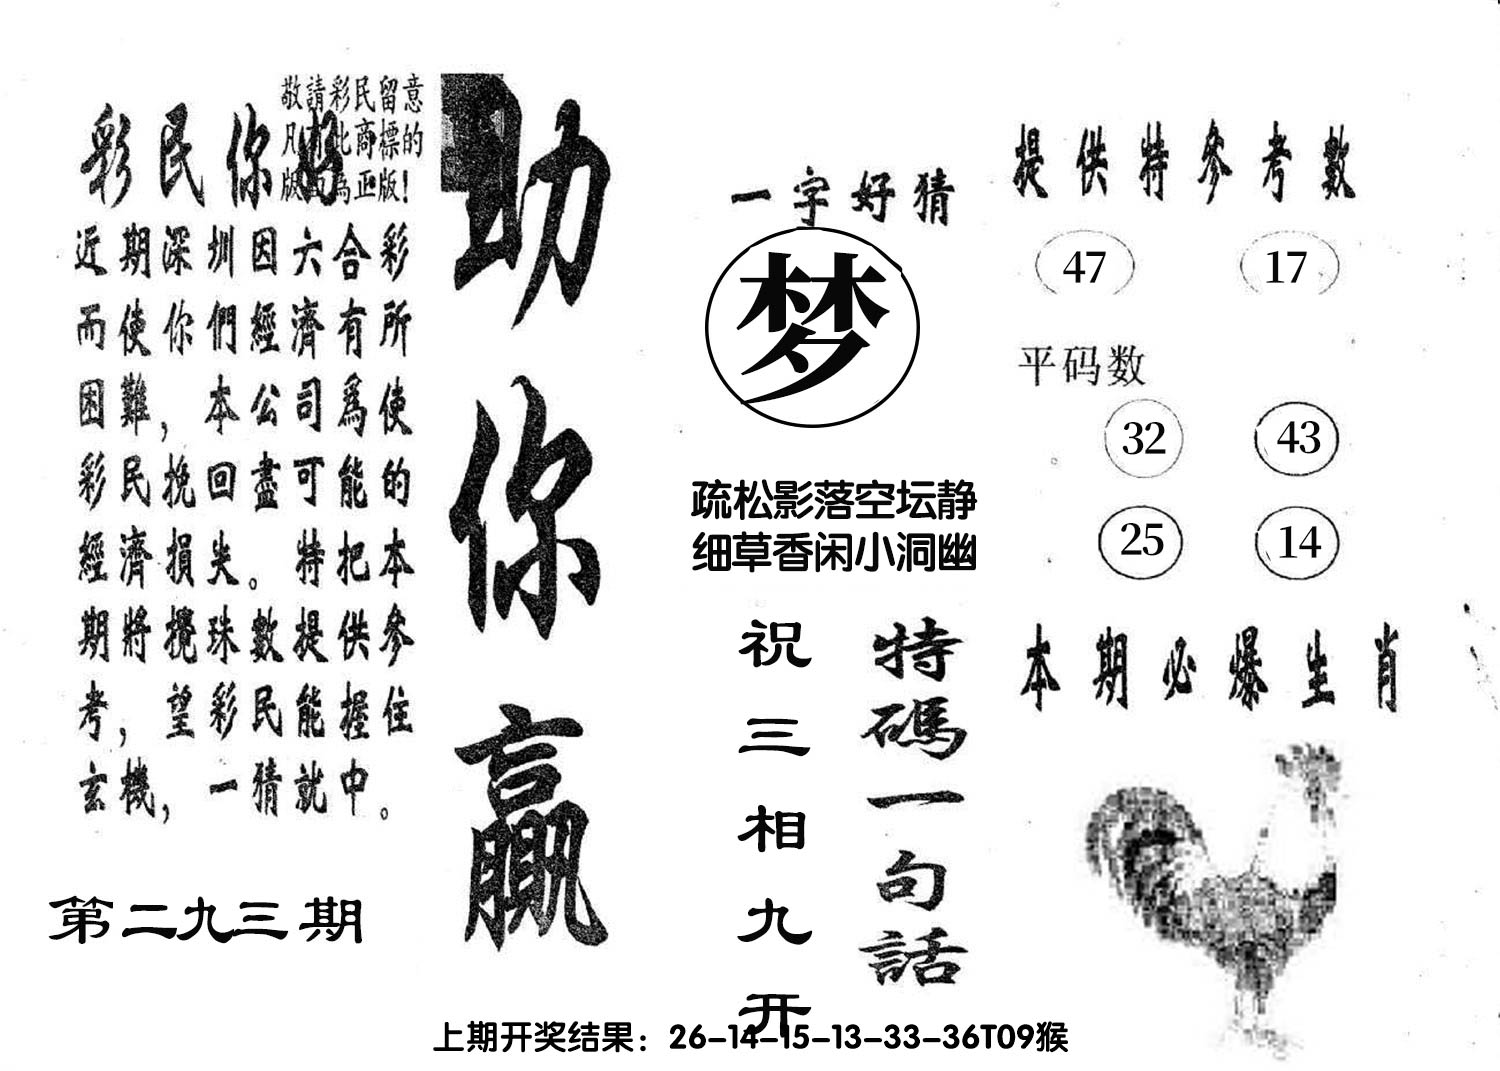 敬請彩民留意
凡有此商標的
版面為正版!
彩民你好
近期深圳因六合彩
而使你們經濟有所
困難，本公司爲使
彩民挽回盡可能的
經濟損失。特把本
期將攪珠數提供參
考，望彩民能握住
玄機，一猜就中。
第二九三期
助你赢
一字好猜
梦
疏松影落空坛静
细草香闲小洞幽
特碼一句話
祝三相九开
提供特參考數
47 17
平码数
32 43
25 14
本期必爆生肖
上期开奖结果：26-14-15-13-33-36T09猴